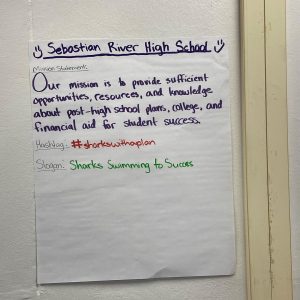 Sebastian River High School
Mission Statement:
Our mission is to provide sufficient
opportunities, resources, and knowledge
about post-high school plans, college, and
financial aid for student success.
Hashtag: #sharkswithaplan
Slogan: Sharks Swimming to Success